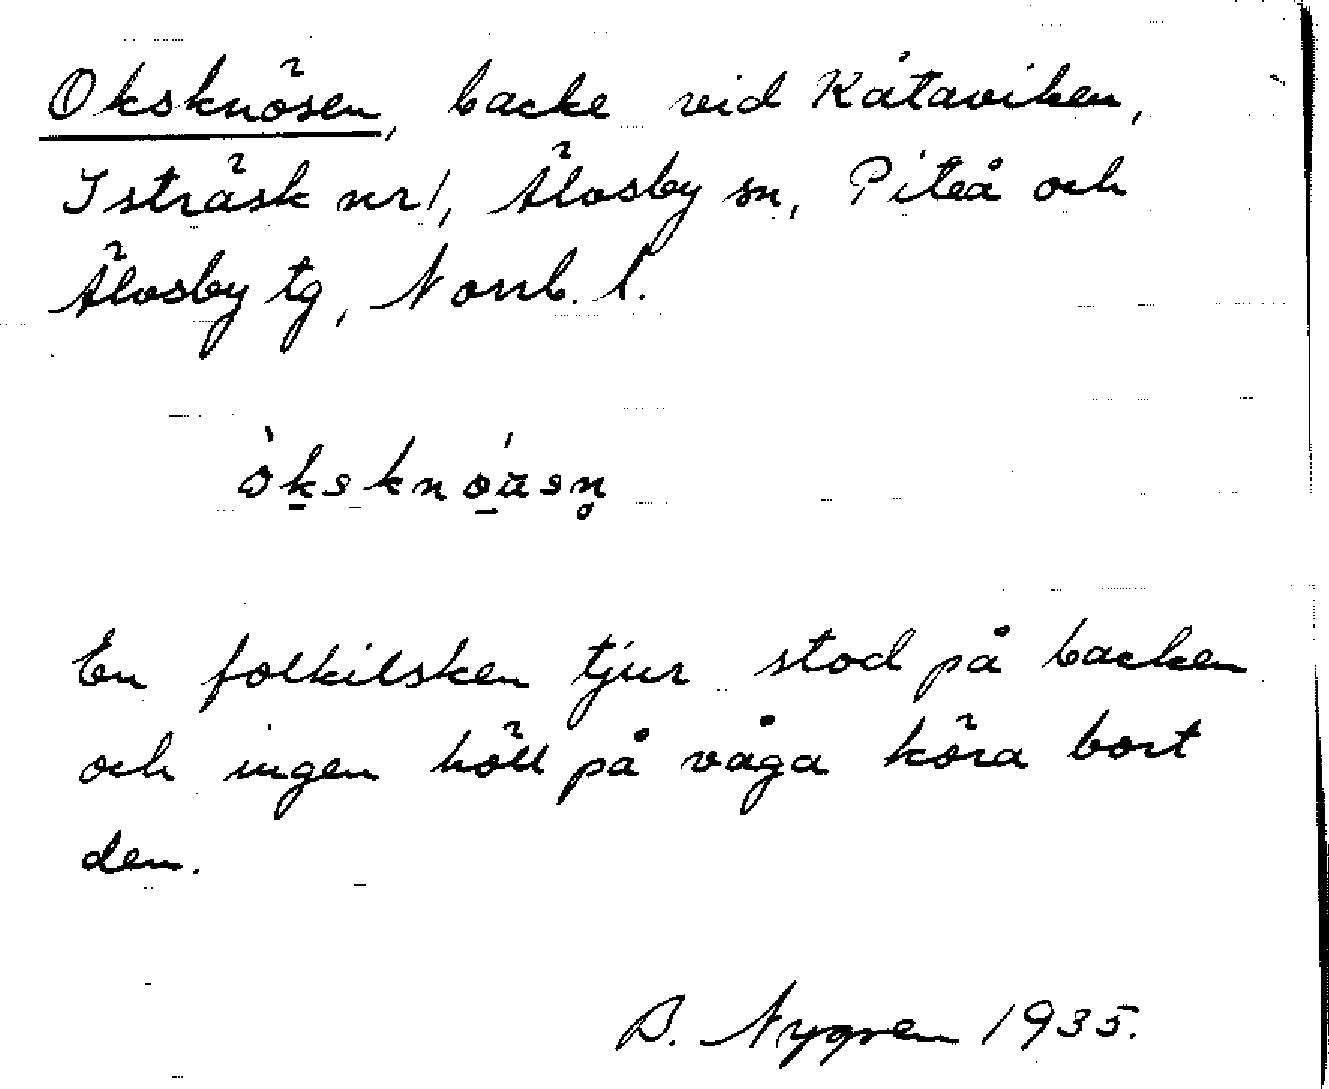 Oksknösen, backe vid Kåtaviken,
Isträsk nr 1, Älvsby sn, Piteå och
Älvsby tg, Norrb. l.
òksknǫ́ạsn̥
En folkilsken tjur stod på backen
och ingen höll på våga köra bort
den.
B. Nygren 1935.